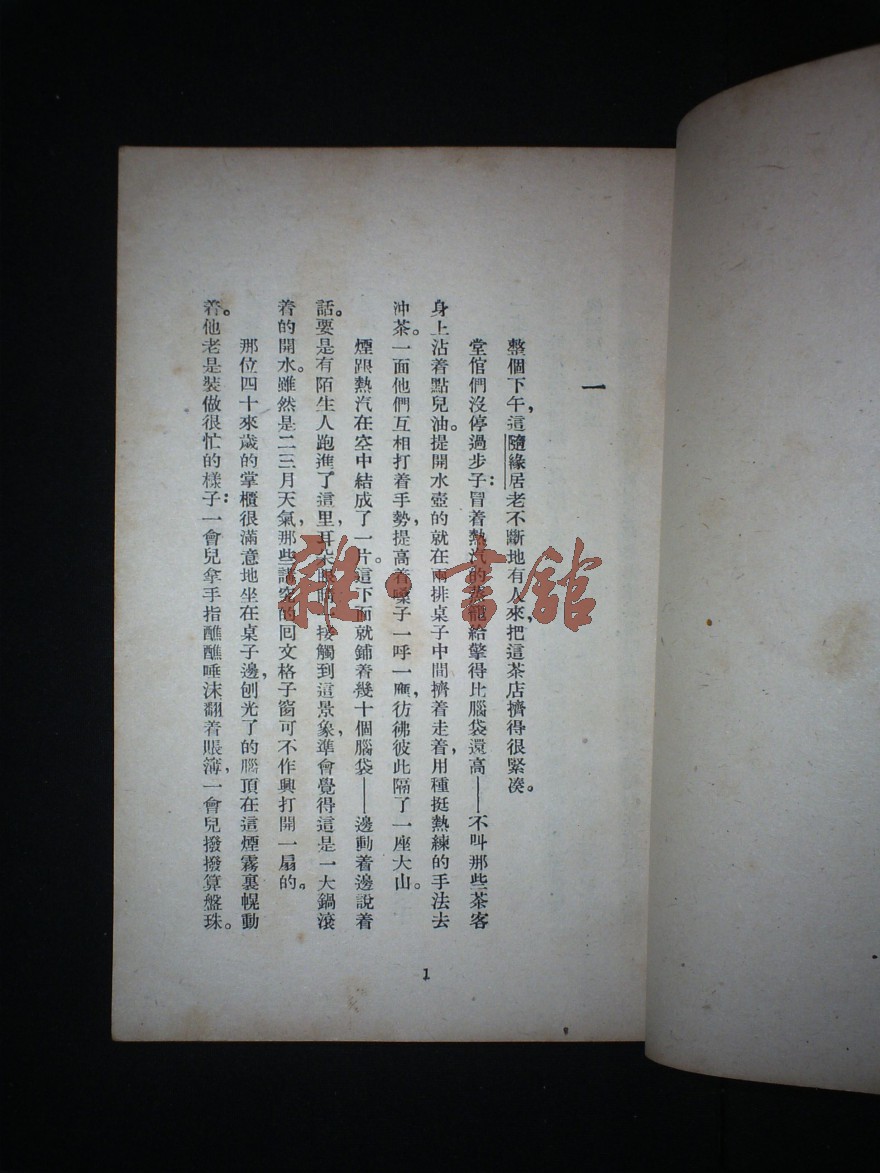 一
整個下午，這隨緣居老不斷地有人來，把這茶店擠得很緊凑。
堂倌們沒停過步子：冒着熱汽的蒸籠給擎得比腦袋還高——不叫那些茶客
身上沾着點兒油。提開水壺的就在兩排桌子中間擠着走着，用種挺熱練的手法去
冲茶。一面他們互相打着手勢，提高着嗓子一呼一應，彷彿彼此隔了一座大山。
煙跟熱汽在空中結成了一片。這下面就鋪着幾十個腦袋——邊動着邊說着
話。要是有陌生人跑進了這里，耳朵眼睛一接觸到這景象，準會覺得這是一大鍋滾
着的開水。雖然是二三月天氣，那些講究的回文格子窗可不作興打開一扇的。
那位四十來歲的掌櫃很滿意地坐在桌子邊，刨光了的腦頂在這煙霧裏幌動
着。他老是裝做很忙的樣子：一會兒拿手指醮醮唾沫翻着賬簿，一會兒撥撥算盤珠。
1
雜·書館